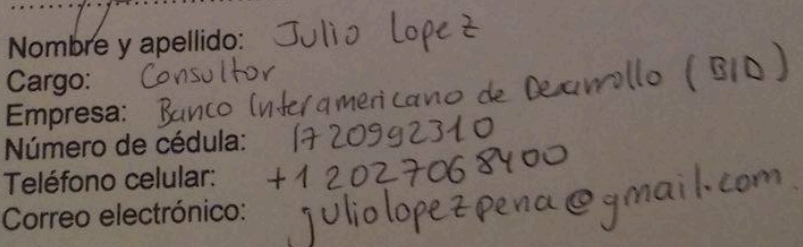 Nombre y apellido: Julio Lopez
Cargo: Consultor
Empresa: Banco Interamericano de Desarrollo (BID)
Número de cédula: 1720992310
Teléfono celular: +12027068400
Correo electrónico: juliolopezpena@gmail.com